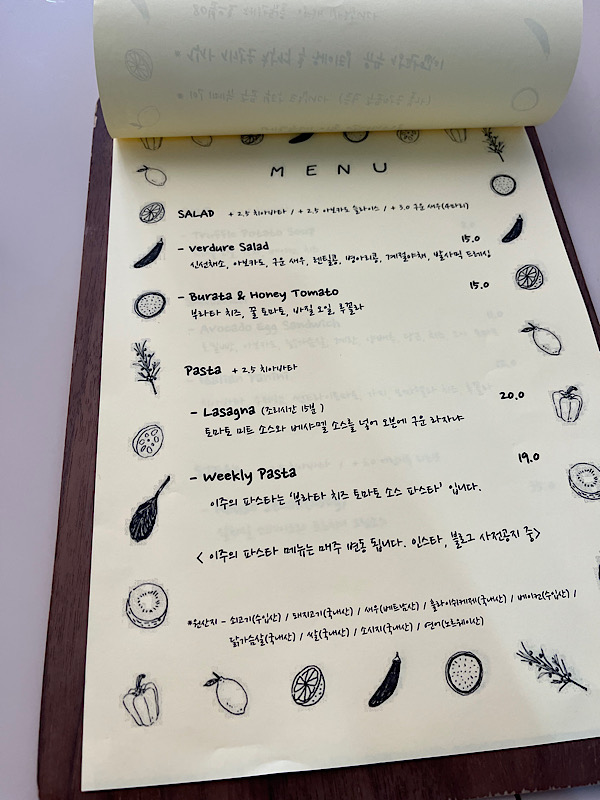 MENU
SALAD + 2.5 치아바타 / + 2.5 아보카도 슬라이스 / + 3.0 구운 새우(4마리)
- verdure Salad 15.0
신선채소, 아보카도, 구운 새우, 렌틸콩, 병아리콩, 계절야채, 발사믹 드레싱
- Burata & Honey Tomato 15.0
부라타 치즈, 꿀 토마토, 바질 오일, 루꼴라
Pasta + 2.5 치아바타
- Lasagna (조리시간 15분) 20.0
토마토 미트 소스와 베샤멜 소스를 넣어 오븐에 구운 라자냐
- Weekly Pasta 19.0
이주의 파스타는 '부라타 치즈 토마토 소스 파스타' 입니다.
< 이주의 파스타 메뉴는 매주 변동 됩니다. 인스타, 블로그 사전공지 중>
*원산지 - 쇠고기(수입산) / 돼지고기(국내산) / 새우(베트남산) / 훌라이쉬케제(국내산) / 베이컨(수입산) /
닭가슴살(국내산) / 쌀(국내산) / 소시지(국내산) / 연어(노르웨이산)